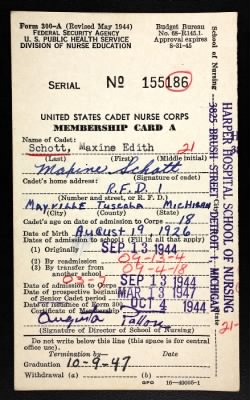 Form 300–A (Revised May 1944)
FEDERAL SECURITY AGENCY
U. S. PUBLIC HEALTH SERVICE
DIVISION OF NURSE EDUCATION
Budget Bureau
No. 68–R145.1.
Approval expires
8-31-45
SERIAL No 155186
UNITED STATES CADET NURSE CORPS
MEMBERSHIP CARD A
Name of Cadet:
Schott, Maxine Edith 21
(Last) (First) (Middle initial)
Maxine Schott
(Signature of cadet)
Cadet's home address:
R.F.D. 1
(Number and street, or R. F. D.)
MAYVILLE TUSCOLA MICHIGAN
(City) (County) (State)
Cadet's age on date of admission to Corps 18
Date of birth AUGUST 19, 1926
Dates of admission to school (Fill in all that apply)
(1) Originally SEP 13 1944
(2) By readmission 09-13-4
(3) By transfer from another school 09-4-18
Date of admission to Corps SEP 13 1944
Date of prospective beginning of Senior Cadet period MAR 13 1947
Date of issuance of Certificate of Membership OCT 4 1944
Augusta
(Signature of Director of School of Nursing)
Do not write below this line (this space for central office use).
Termination by— Date
Graduation 10-9-47
Withdrawal (a) (b)
GPO 16—40005-1
School of Nursing
HARPER HOSPITAL SCHOOL OF NURSING
3825 BRUSH STREET
DETROIT 1, MICHIGAN
21-